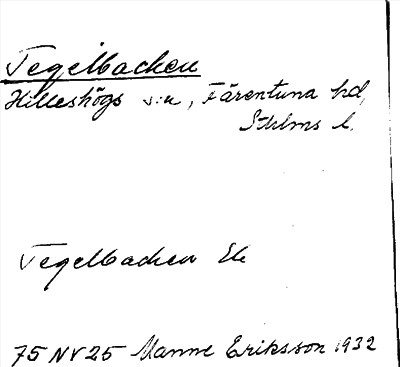 Tegelbacken
Hilleshögs s:n, Färentuna hd,
Sthlms l.
Tegelbacken Eb
75 NV 25 Manne Eriksson 1932